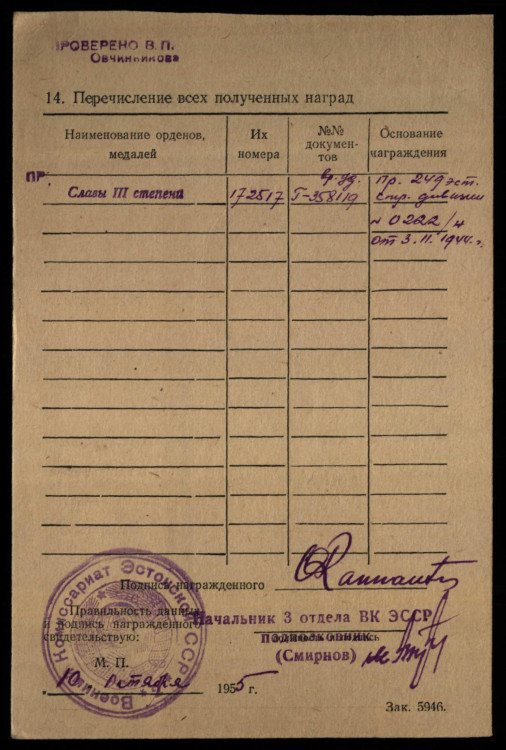 ПРОВЕРЕНО В. П.
Овчинникова
14. Перечисление всех полученных наград
Наименование орденов, медалей
Их номера
№№ документов
Основание награждения
ПР
Славы III степени
172517
вр. уд.
Г-358119
Пр. 249 эст.
стр. дивизии
№ 0222/н
от 3.11.1944 г.
Подпись награжденного
Правильность данных
и подпись награжденного
свидетельствую:
Начальник 3 отдела ВК ЭССР
подполковник
(Смирнов)
Военный Комиссариат Эстонской ССР
М. П.
„10 октября 1955 г.
Зак. 5946.